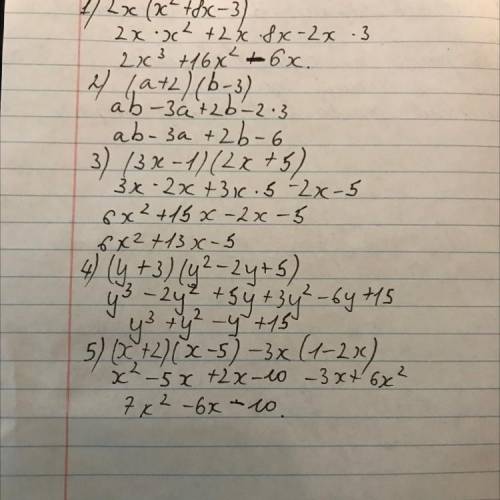 1) 2x (x² + 8x - 3)
2x · x² + 2x · 8x - 2x · 3
2x³ + 16x² - 6x.
2) (a+2) (b-3)
ab - 3a + 2b - 2 · 3
ab - 3a + 2b - 6
3) (3x - 1) (2x + 5)
3x · 2x + 3x · 5 - 2x - 5
6x² + 15x - 2x - 5
6x² + 13x - 5
4) (y + 3) (y² - 2y + 5)
y³ - 2y² + 5y + 3y² - 6y + 15
y³ + y² - y + 15
5) (x + 2) (x - 5) - 3x (1 - 2x)
x² - 5x + 2x - 10 - 3x + 6x²
7x² - 6x - 10.